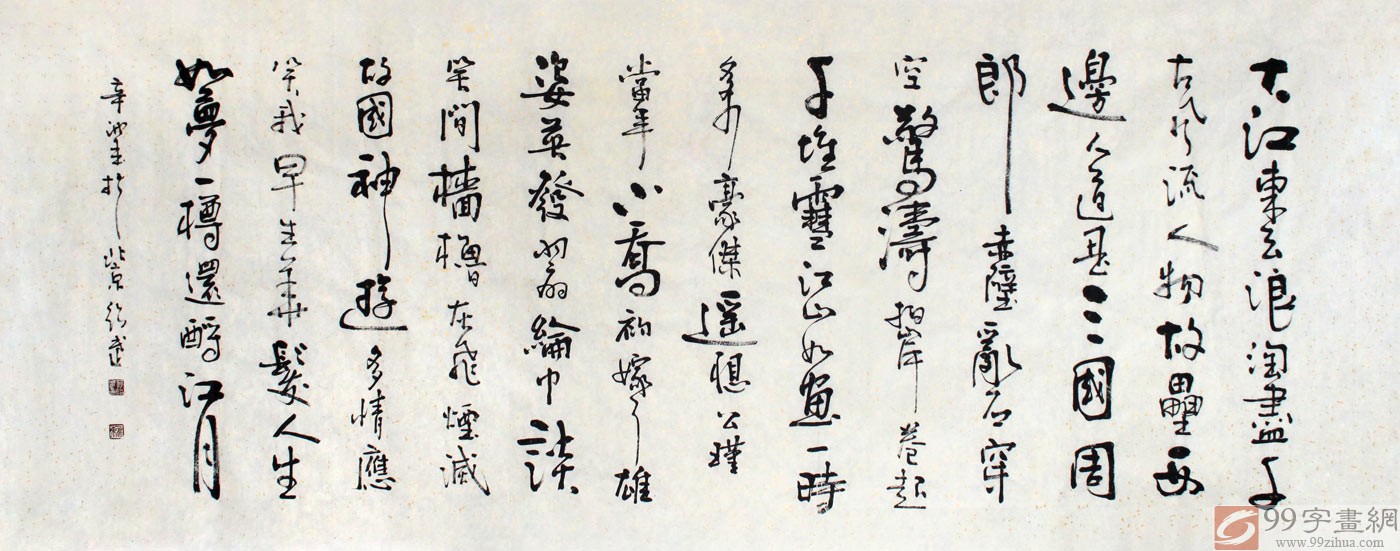 大江東去浪淘盡千
古風流人物故壘西
邊人道是三國周
郎赤壁亂石穿
空驚濤拍岸卷起
千堆雪江山如畫一時
多少豪傑遙想公瑾
當年小喬初嫁了雄
姿英發羽扇綸巾談
笑間檣櫓灰飛煙滅
故國神遊多情應
笑我早生華髮人生
如夢一樽還酹江月
辛卯於北京
99字畫網
www.99zihua.com